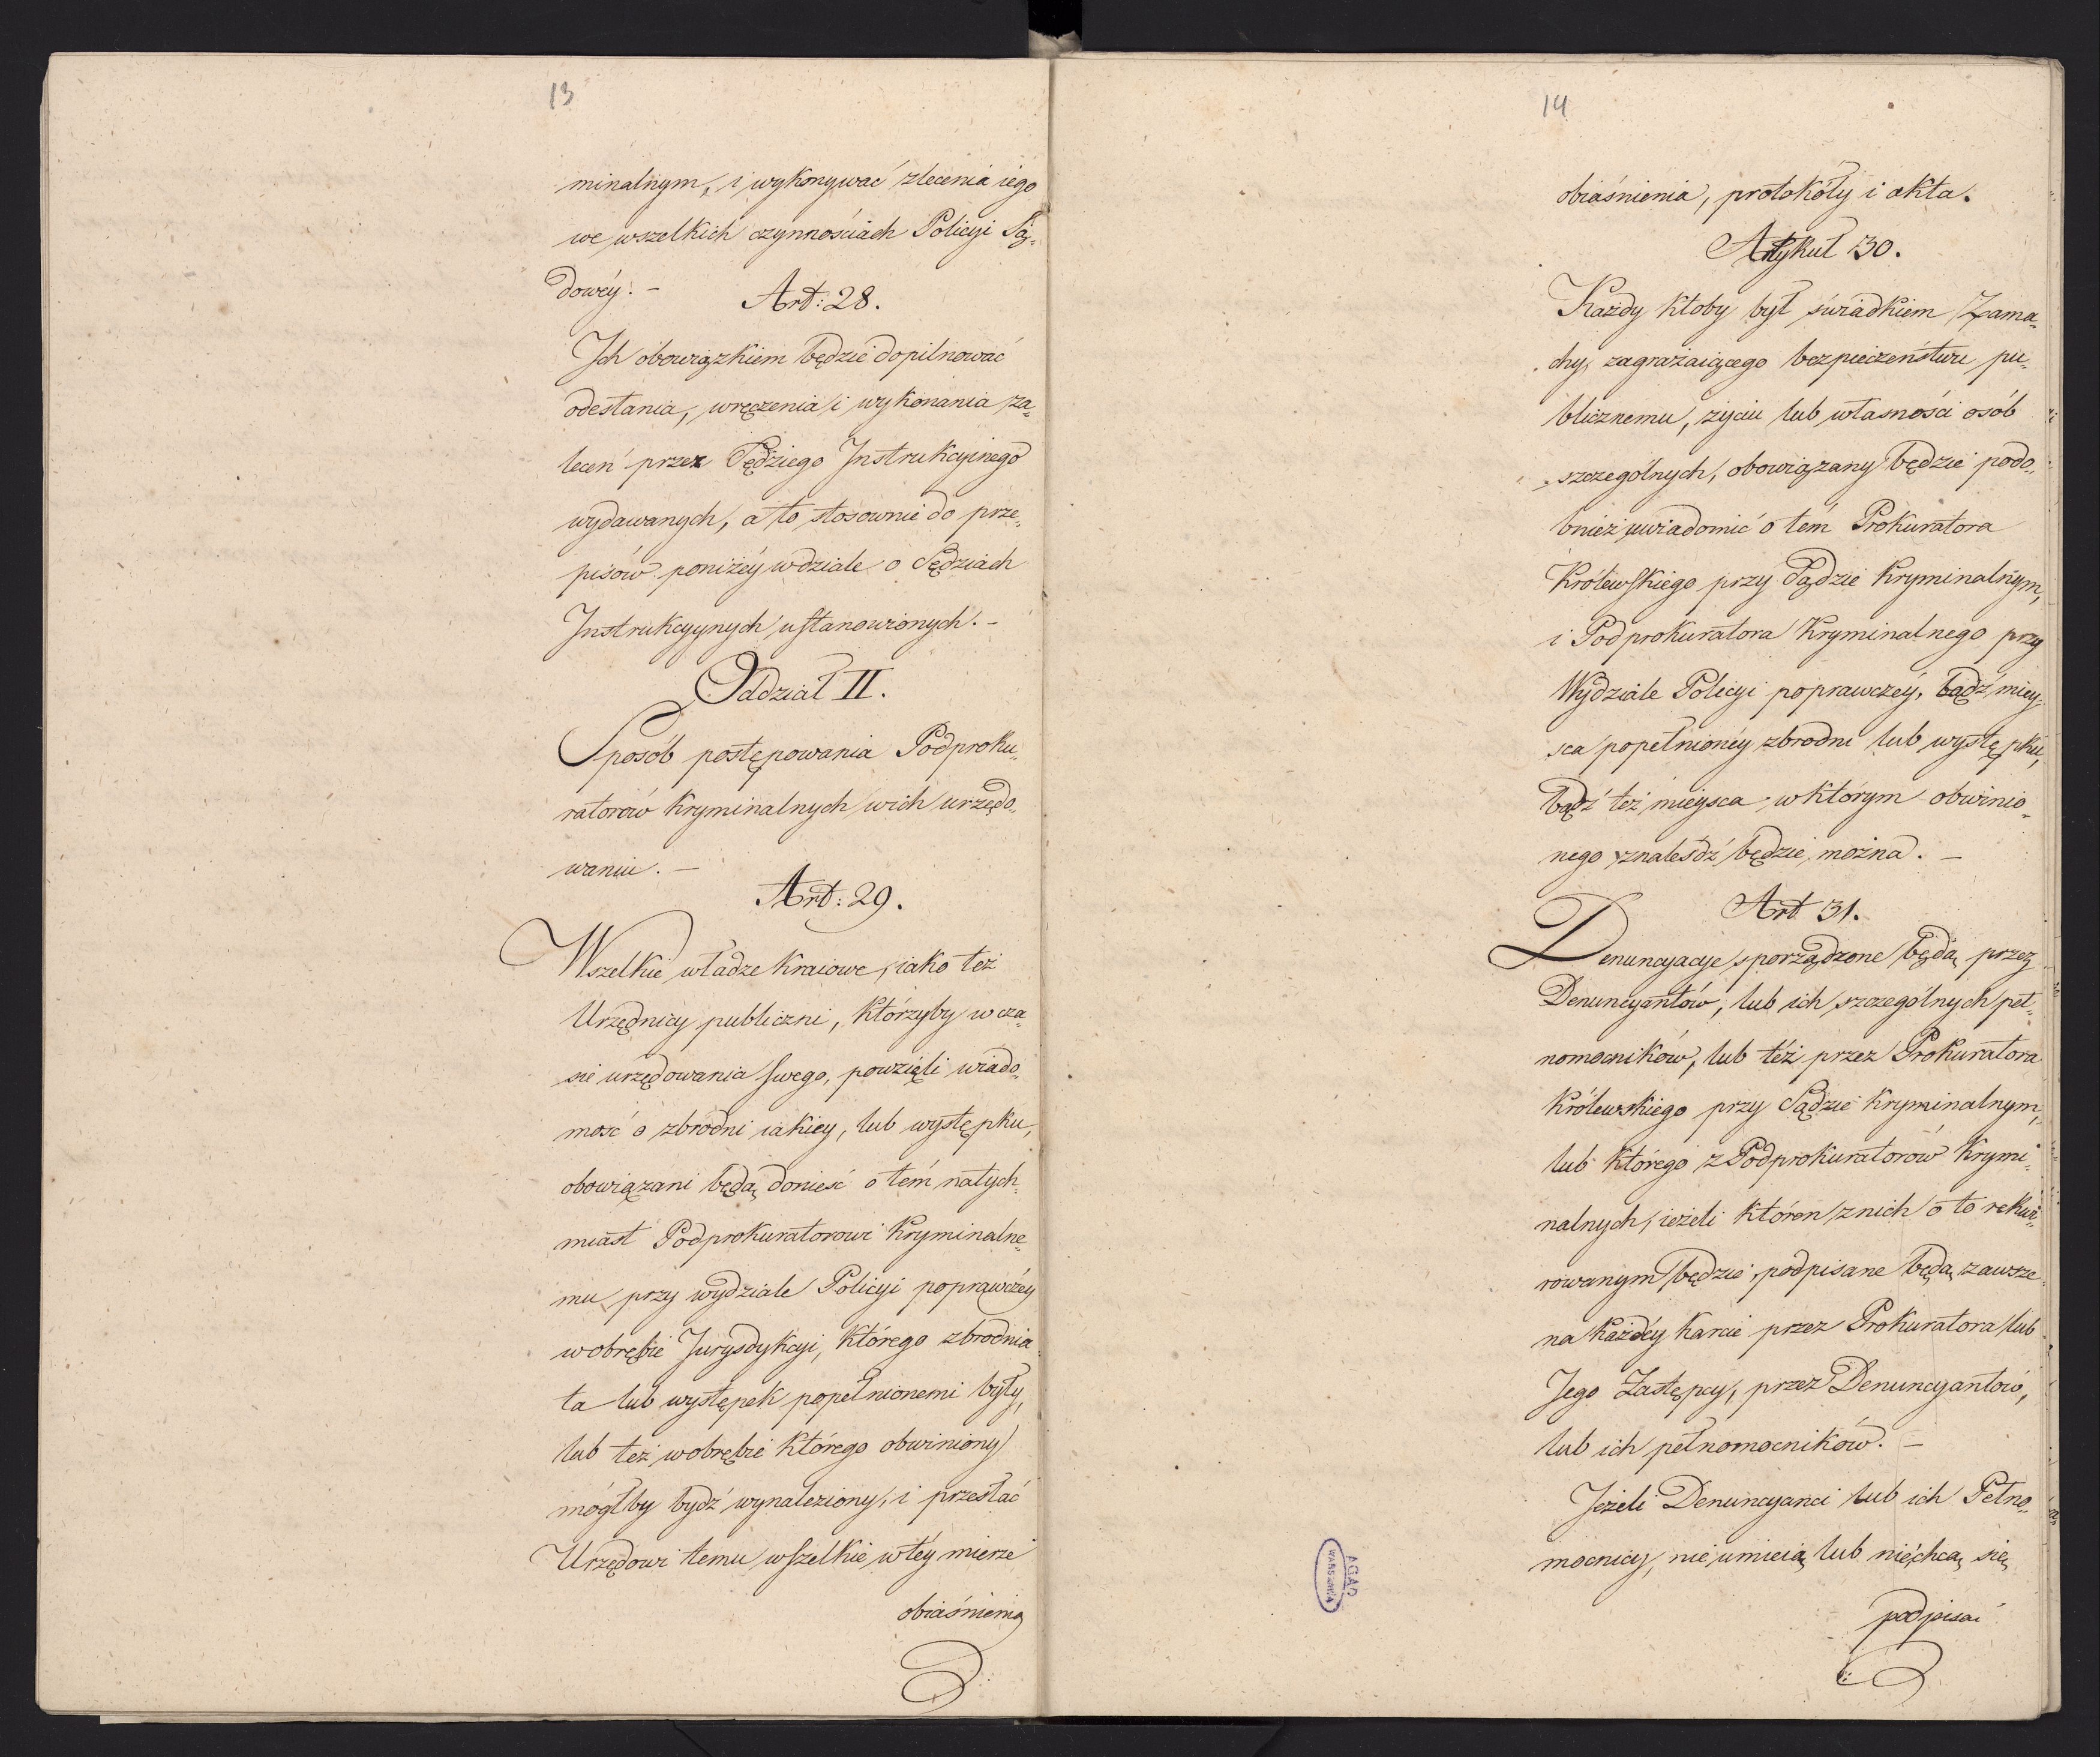 13
minalnym, i wykonywać zlecenia iego
we wszelkich czynnościach Policyi Są„
dowéy. –
Art: 28.
Ich obowiązkiem będzie dopilnować
odesłania, wręczenia i wykonania za„
leceń przez Sędziego Instrukcyinego
wydawanych, a to stosownie do prze„
pisów poniżéy w dziale o Sędziach
Instrukcyynych ustanowionych. –
Oddział II.
Sposób postępowania Podproku„
ratorów Kryminalnych w ich urzędo„
waniu. –
Art: 29.
Wszelkie władze Kraiowe, iako też
Urzędnicy publiczni, którzyby w cza„
sie urzędowania swego, powzięli wiado„
mość o zbrodni iakiey, lub występku,
obowiązani będą donieść o tém natych„
miast Podprokuratorowi Kryminalne„
mu przy wydziale Policyi poprawczéy
w obrębie Jurysdykcyi, którego zbrodnia
ta lub występek popełnionemi były,
lub też w obrębie którego obwiniony
mógłby bydź wynaleziony, i przesłać
Urzędowi temu wszelkie w téy mierze
obiaśnienia
14
obiaśnienia, protokóły i akta.
Artykuł 30.
Każdy ktoby był świadkiem Zama„
chu, zagrażaiącego bezpieczeństwu pu„
blicznemu, życiu lub własności osób
szczególnych, obowiązany będzie podo„
bnież uwiadomić o tém Prokuratora
Królewskiego przy Sądzie Kryminalnym,
i Podprokuratora Kryminalnego przy
Wydziale Policyi poprawczéy, bądź miey„
sca popełnionéy zbrodni lub występku,
bądź też mieysca w którym obwinio„
nego znaleśdź będzie można. –
Art 31.
Denuncyacye sporządzone będą przez
Denuncyantów, lub ich szczególnych peł„
nomocników, lub też przez Prokuratora
Królewskiego przy Sądzie Kryminalnym,
lub którego z Podprokuratorów Krymi„
nalnych, ieżeli któren z nich o to rekwi„
rowanym będzie, podpisane będą zawsze
na każdéy karcie przez Prokuratora lub
Jego Zastępcy, przez Denuncyantów,
lub ich pełnomocników. –
Jeżeli Denuncyanci lub ich Pełno„
mocnicy, nie umieią lub niechcą się
podpisać
AGAD
WARSZAWA